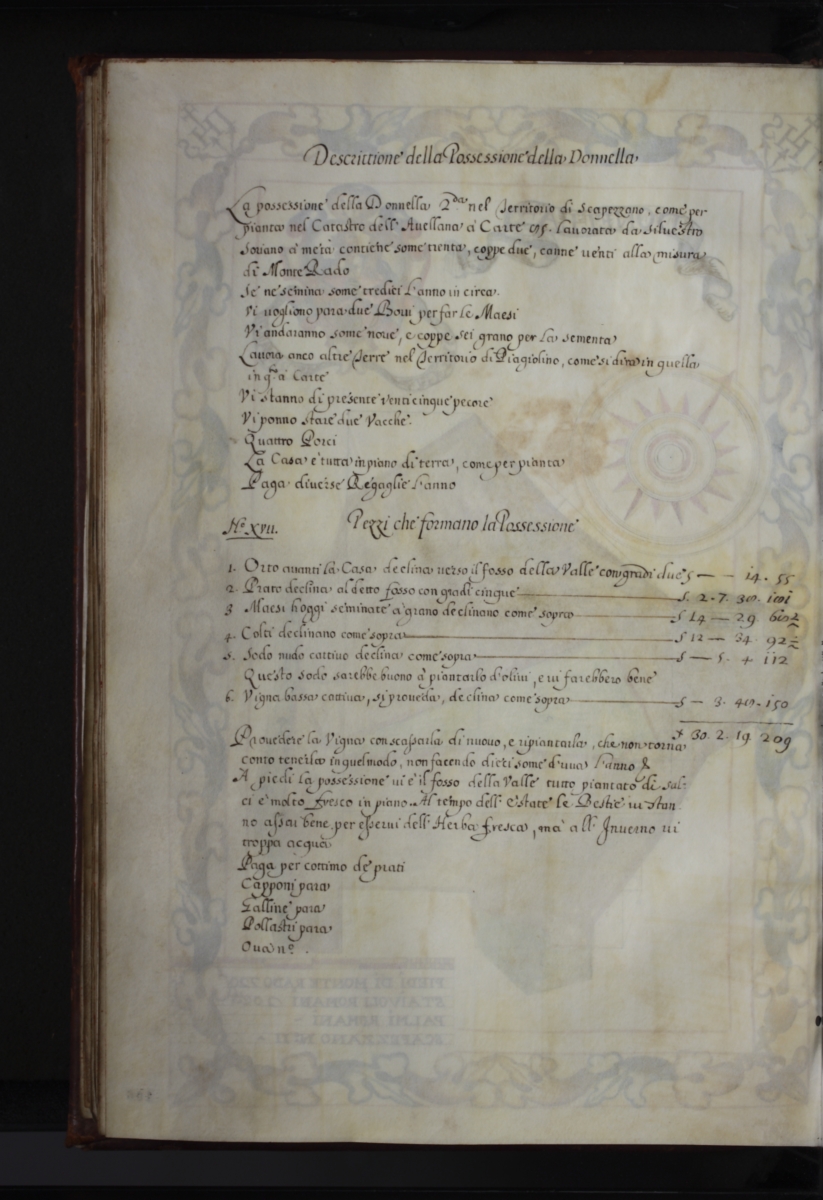 Descrittione della Possessione della Donnella
La possessione della Donnella 2da nel Territorio di Scapezzano, come per
pianta nel Catastro dell'Avellana à Carte lavorata da Silvestro
Soriano à metà contiene some trenta, coppe due, canne venti alla misura
di Monte Rado
Se ne semina some tredici l'anno in circa.
Vi vogliono para due Bovi per far le Maesi
Vi andaranno some nove, e coppe sei grano per la sementa
Lavora anco altre Terre nel Territorio di Piagiolino, come si dirà in quella
in qta à Carte
Vi stanno di presente venti cinque pecore
Vi ponno stare due Vacche.
Quattro Porci
La Casa è tutta in piano di terra, come per pianta
Paga diverse Regaglie l'anno
No. XVII. Pezzi che formano la Possessione
1. Orto avanti la Casa declina verso il fosso della Valle con gradi due S — — 14. 55
2. Prato declina al detto fosso con gradi cinque S. 2. 7. 30. 101
3 Maesi hoggi seminate à grano declinano come sopra S 14 — 29
4. Colti declinano come sopra S 12 — 34. 92
5. Sodo nudo cattivo declina come sopra S — 5. 4 112
Questo sodo sarebbe buono à piantarlo d'olivi, e vi farebbero bene
6. Vigna bassa cattiva, si proveda, declina come sopra S — 3. 40. 150
S 30. 2. 19. 209
Provedere la Vigna con scassarla di nuovo, e ripiantarla, che non torna
conto tenerla in quel modo, non facendo dieci some d'uva l'anno &
A piedi la possessione vi è il fosso della Valle tutto piantato di sal:
ci è molto fresco in piano. Al tempo dell'estate le Bestie vi stan
no assai bene per esservi dell'Herba fresca, mà all'Inverno vi
troppa acqua
Paga per cottimo de prati
Capponi para
Galline para
Pollastri para
Ova no.
PIEDI DI MONTE RADO
STAIVOLI ROMANI
PALMI ROMANI
SCAPEZZANO